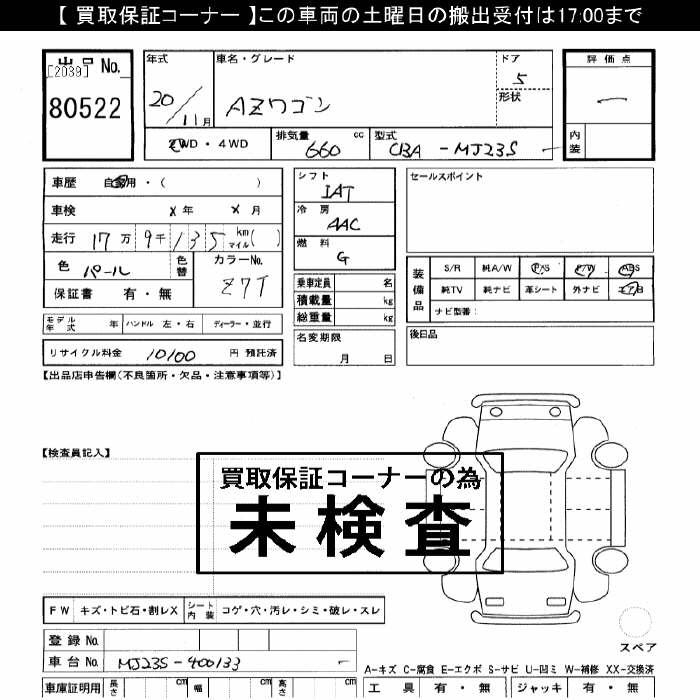 【 買取保証コーナー 】この車両の土曜日の搬出受付は17:00まで
出品No.
[2039]
80522
年式
20/11月
車名・グレード
AZワゴン
ドア
5
形状
評価点
内装
2WD・4WD
排気量 cc
660
型式
CBA - MJ23S
車歴 自家用・( )
車検 × 年 × 月
走行 17万 9千 135 km マイル( )
色 パール
色替
カラーNo.
Z7T
保証書 有・無
シフト
IAT
冷房
AAC
燃料
G
乗車定員 名
積載量 kg
総重量 kg
セールスポイント
装備品
S/R 純A/W P/S P/W ABS
純TV 純ナビ 革シート 外ナビ エアB
ナビ型番：
モデル年式 年 ハンドル 左・右 ディーラー・並行
リサイクル料金 10100 円 預託済
名変期限
月 日
後日品
【出品店申告欄(不良箇所・欠品・注意事項等)】
【検査員記入】
買取保証コーナーの為
未検査
FW キズ・トビ石・割レX シート内装 コゲ・穴・汚レ・シミ・破レ・スレ
登録No.
車台No. MJ23S-400133
スペア
車庫証明用 長さ cm 幅 cm 高さ cm
A-キズ C-腐食 E-エクボ S-サビ U-凹ミ W-補修 XX-交換済
工具 有・無 ジャッキ 有・無